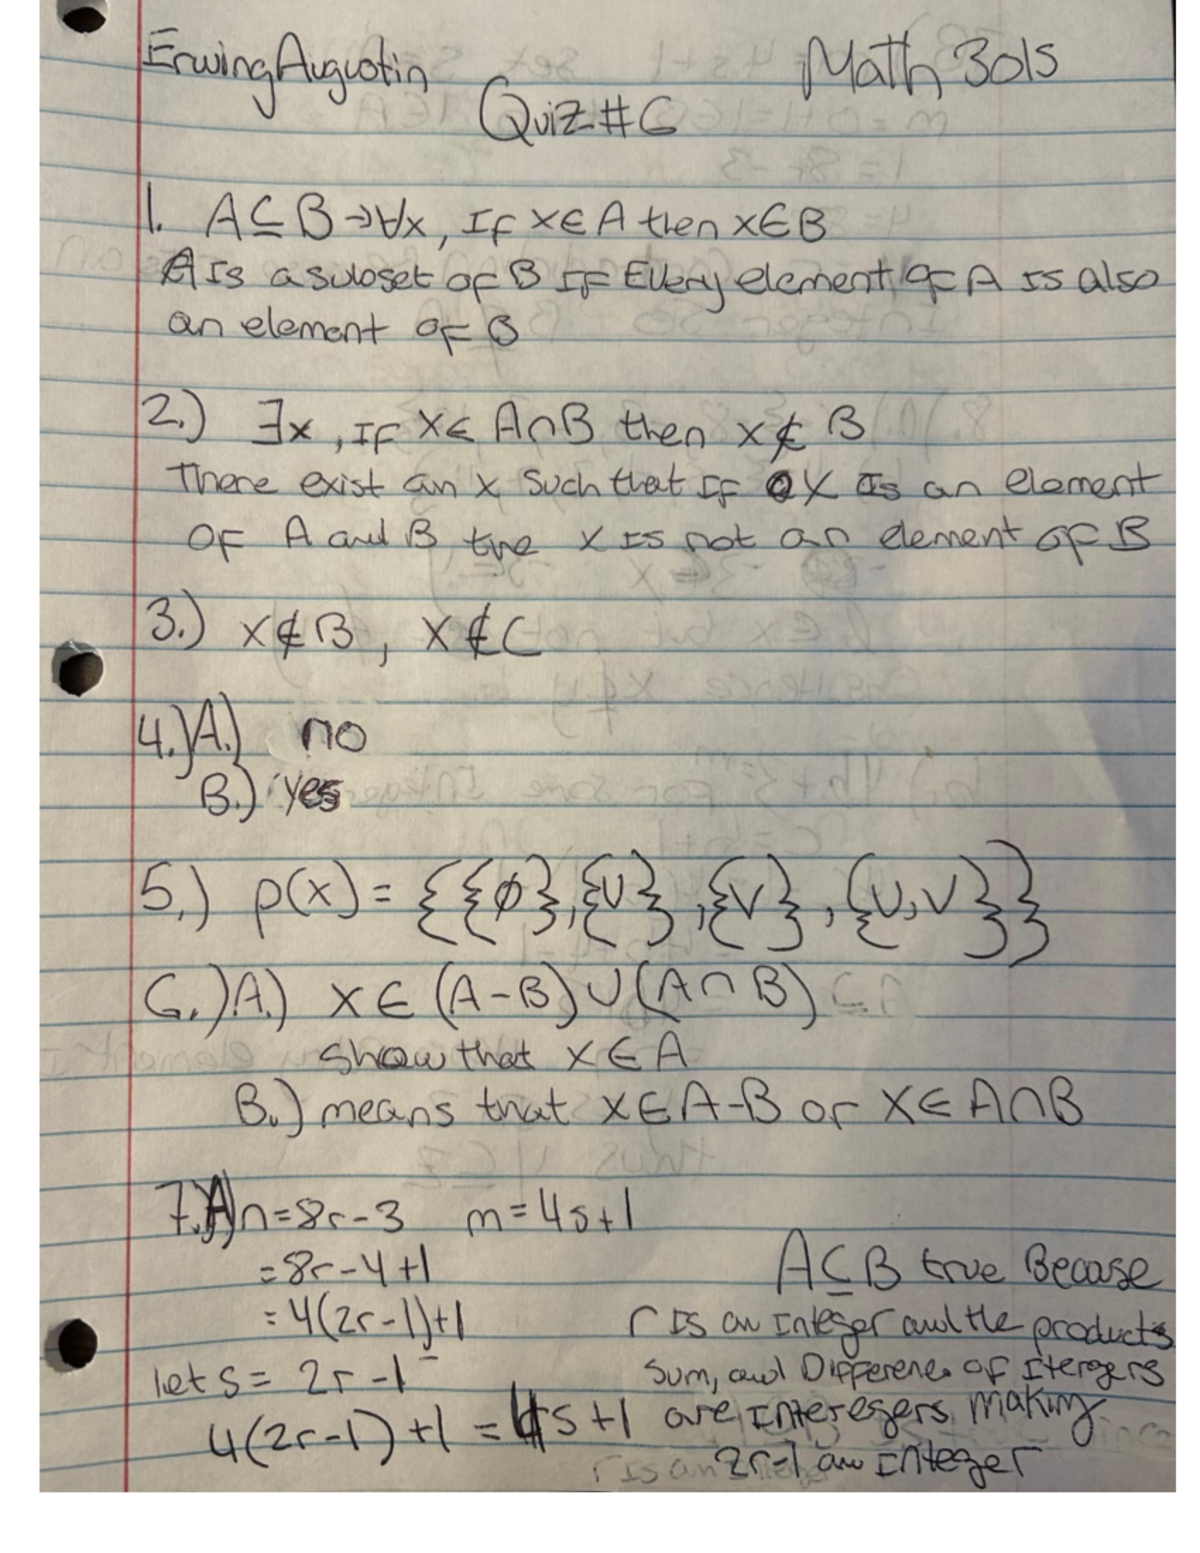 Erwing Augustin Math 3015
Quiz #6
1. A ⊆ B → ∀x, If x ∈ A then x ∈ B
A Is a subset of B IF Every element of A Is also
an element of B
2.) ∃x, IF x ∈ A∩B then x ∉ B
There exist an x Such that IF X Is an element
OF A and B the x Is not an element of B
3.) x ∉ B, x ∉ C
4.) A.) no
B.) yes
5.) p(x) = {{∅},{U},{V},{U,V}}
6.) A.) x ∈ (A-B) ∪ (A∩B)
show that x ∈ A
B.) means that x ∈ A-B or x ∈ A∩B
7.) A) n = 8r-3 m = 4s+1
= 8r-4+1
= 4(2r-1)+1
let s = 2r-1
4(2r-1)+1 = 4s+1
A ⊆ B true Becase
r Is an Integer and the products
Sum, and Difference of Itergers
are Interegers making
2r-1 an Integer